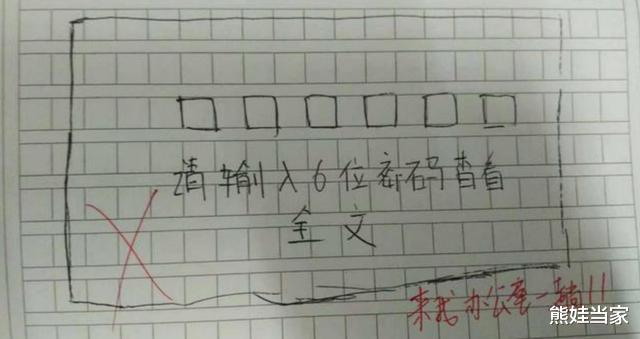 请输入6位密码查看
全文
来我办公室一趟!!
熊娃当家